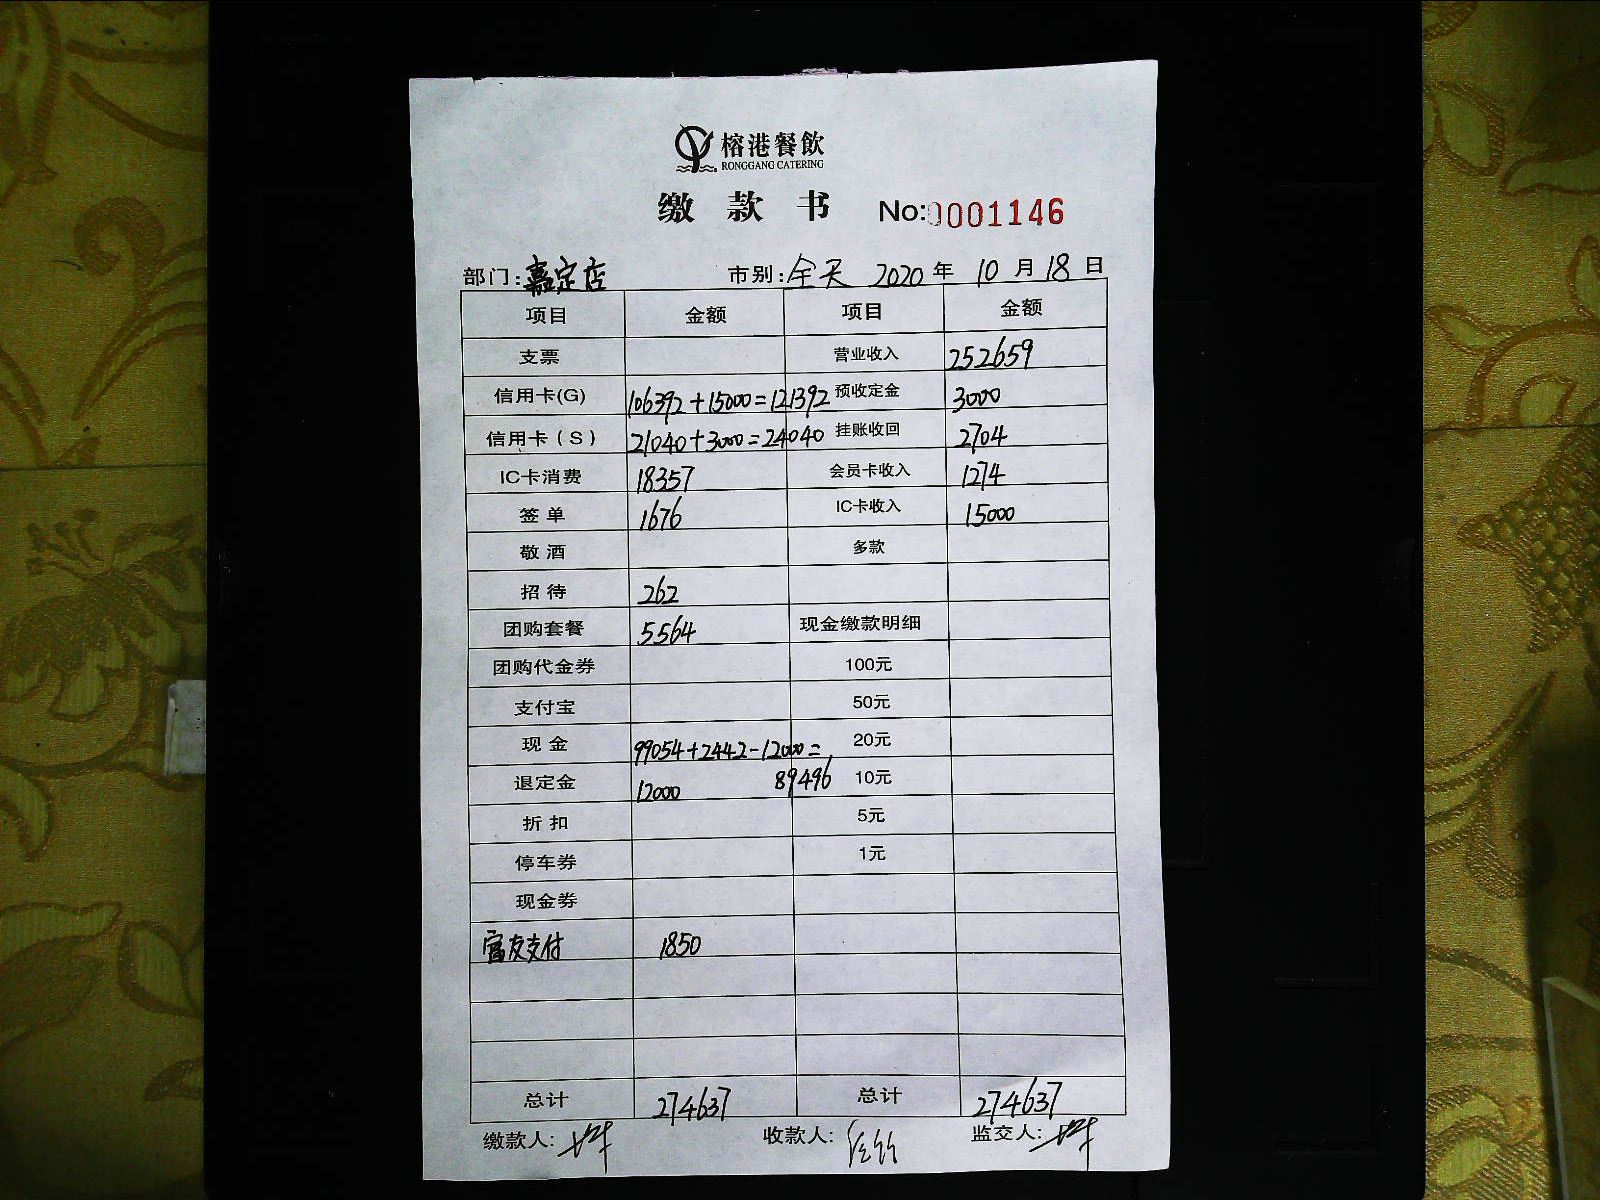 榕港餐飲
RONGGANG CATERING
缴款书 No:0001146
部门:嘉定店 市别:全天 2020年10月18日
项目 金额 项目 金额
支票 营业收入 252659
信用卡(G) 106392+15000=121392 预收定金 3000
信用卡(S) 21040+3000=24040 挂账收回 2704
IC卡消费 18357 会员卡收入 1274
签单 1676 IC卡收入 15000
敬酒 多款
招待 262
团购套餐 5564 现金缴款明细
团购代金券 100元
支付宝 50元
现金 99054+2442-12000= 20元
退定金 12000 89496 10元
折扣 5元
停车券 1元
现金券
富友支付 1850
总计 274637 总计 274637
缴款人: 收款人: 监交人: